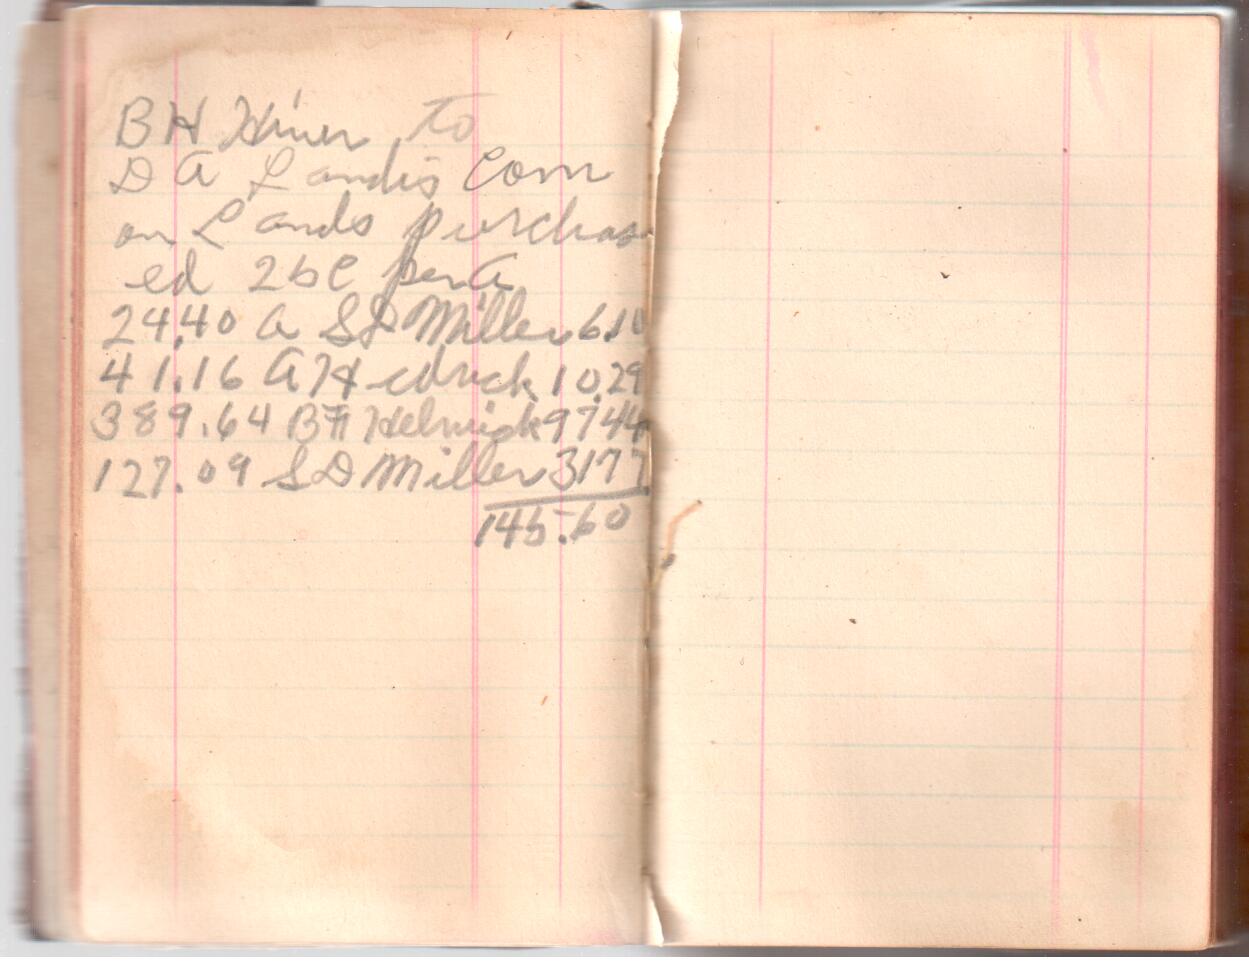 B H Hiner to
D A Landis Com
on Lands purchas
ed 25¢ per A
24.40 A S D Miller 6.10
41.16 A Hedrick 10.29
389.64 B F Helmick 97 44
127.09 S D Miller 31 77
145.60